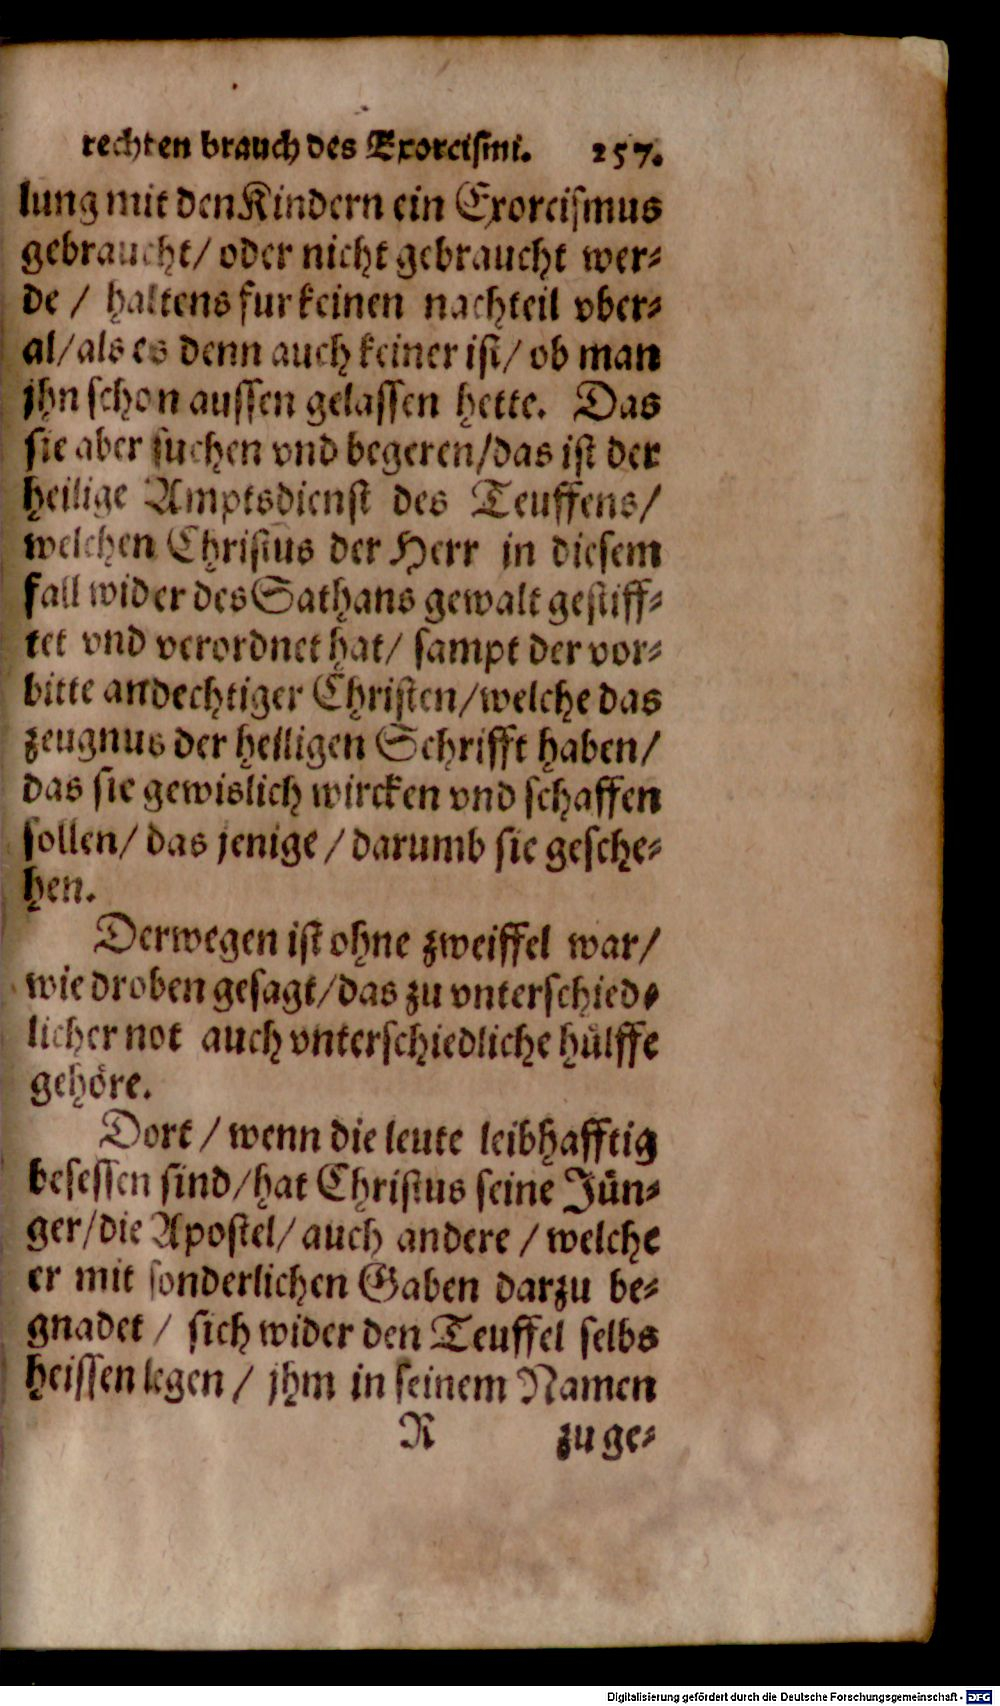 rechten brauch des Exorcismi. 257.
lung mit den Kindern ein Exorcismus
gebraucht/ oder nicht gebraucht wer⸗
de / haltens fur keinen nachteil vber⸗
al/ als es denn auch keiner ist/ ob man
jhn schon aussen gelassen hette. Das
sie aber suchen vnd begeren/das ist der
heilige Amptsdienst des Teuffens/
welchen Christus der Herr in diesem
fall wider des Sathans gewalt gestiff⸗
tet vnd verordnet hat/ sampt der vor⸗
bitte andechtiger Christen/welche das
zeugnus der heiligen Schrifft haben/
das sie gewislich wircken vnd schaffen
sollen/ das jenige / darumb sie gesche⸗
hen.
Derwegen ist ohne zweiffel war/
wie droben gesagt/das zu vnterschied⸗
licher not auch vnterschiedliche hülffe
gehöre.
Dort / wenn die leute leibhafftig
besessen sind/hat Christus seine Jün⸗
ger/die Apostel/ auch andere / welche
er mit sonderlichen Gaben darzu be⸗
gnadet / sich wider den Teuffel selbs
heissen legen / jhm in seinem Namen
R zu ge⸗
Digitalisierung gefördert durch die Deutsche Forschungsgemeinschaft - DFG